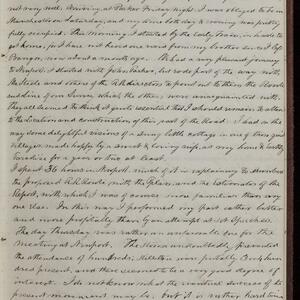 not very well. Arriving at Parker Friday night. I was obliged to be in
Manchester on Saturday, and my time both day & evening was pretty
fully occupied. This morning I started by the early train, in haste to
get home, for I have not heard one word from my brother since I left
Bangor, now about a month ago. We had a very pleasant journey
to Newport. I started with John Parker, but rode part of the way with
Mr Steele and some of the RR directors to point out to them the Route
and line of our Survey which the others were unacquainted with.
They all seemed to think it quite essential that I should remain to attend
to the location and construction of this part of the Road. I had on the
way some delightful visions of a sunny little cottage in one of these quiet
villages made happy by a sweet & loving wife, as my home & earthly
Paradise for a year or two at least.
I spent 36 hours in Newport, much of it in explaining to the directors
the proposed RR Route, with the Plans, and the Estimates of the
Report, with which I was of course more familiar than any
one else. In this way I performed my part rather better
and more profitably than by an attempt at set Speeches.
The day Thursday was rather an unfavorable one for the
Meeting at Newport. The storm undoubtedly prevented
the attendance of hundreds; still there was probably five hun
dred present, and there seemed to be a very good degree of
interest. I do not know what the ultimate success of the
present movement may be, but it is rather hard time